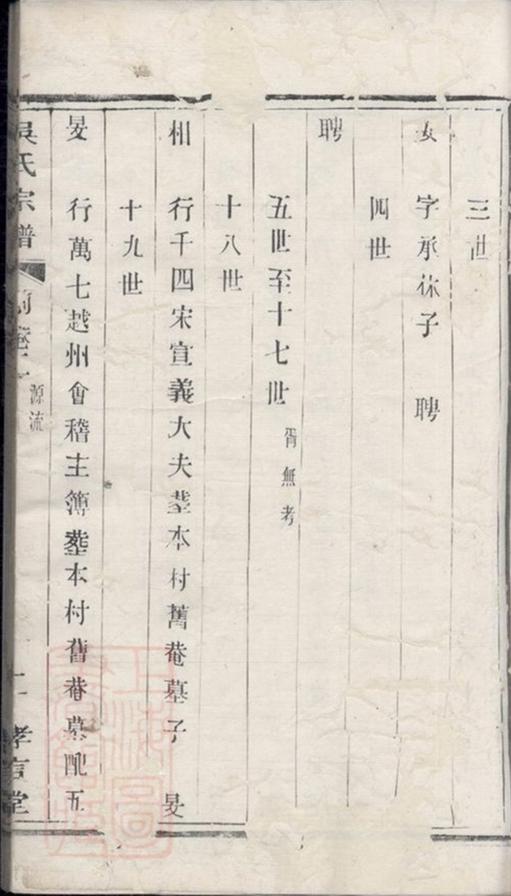 三世
字承休子　聘
四世
聘
五世至十七世 胥無考
十八世
相　行千四宋宣義大夫塟本村舊菴墓子　旻
十九世
旻　行萬七越州會稽主簿塟本村舊菴墓配五
吳氏宗譜
源流
孝友堂